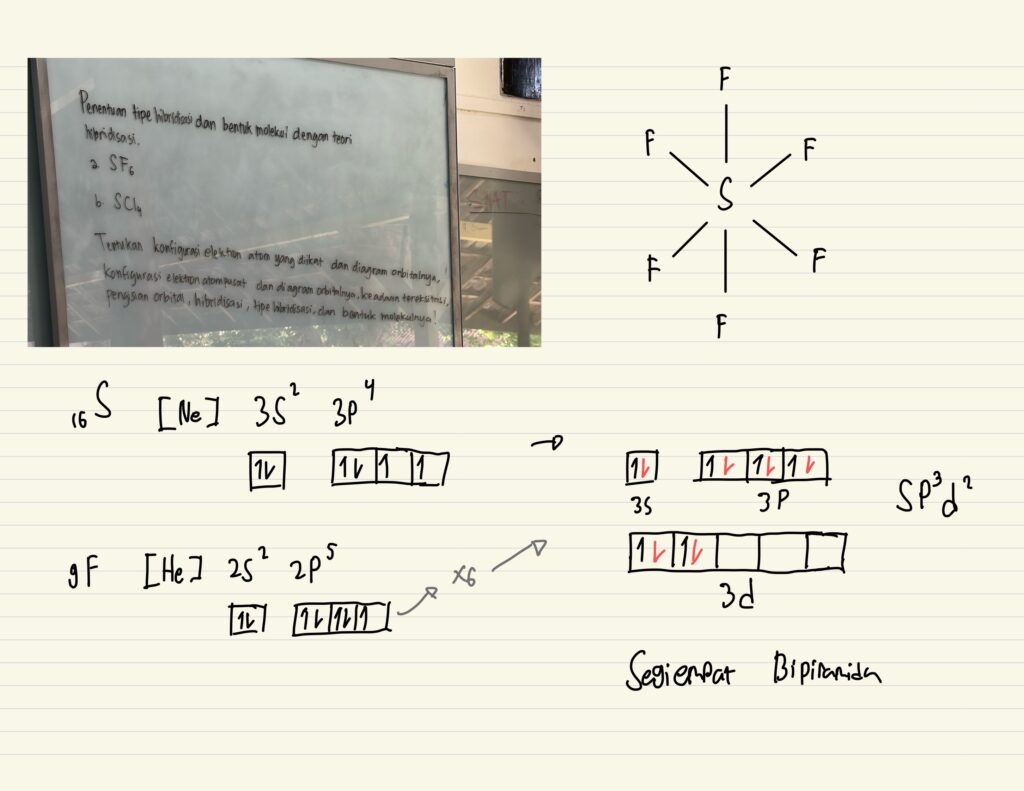 Penentuan tipe hibridisasi dan bentuk molekul dengan teori
hibridisasi.
a. SF₆
b. SCl₄
Tentukan konfigurasi elektron atom yang diikat dan diagram orbitalnya,
konfigurasi elektron atom pusat dan diagram orbitalnya, keadaan tereksitasi,
pengisian orbital, hibridisasi, tipe hibridisasi, dan bentuk molekulnya!
SMAT
F
F F
S
F F
F
₁₆S [Ne] 3s² 3p⁴
1⇂ 1⇂ 1 1 → 1⇂ 1⇂ 1⇂ 1⇂
3s 3p SP³d²
₉F [He] 2s² 2p⁵ x6 1⇂ 1⇂
1⇂ 1⇂ 1⇂ 1 3d
Segiempat Bipiramida